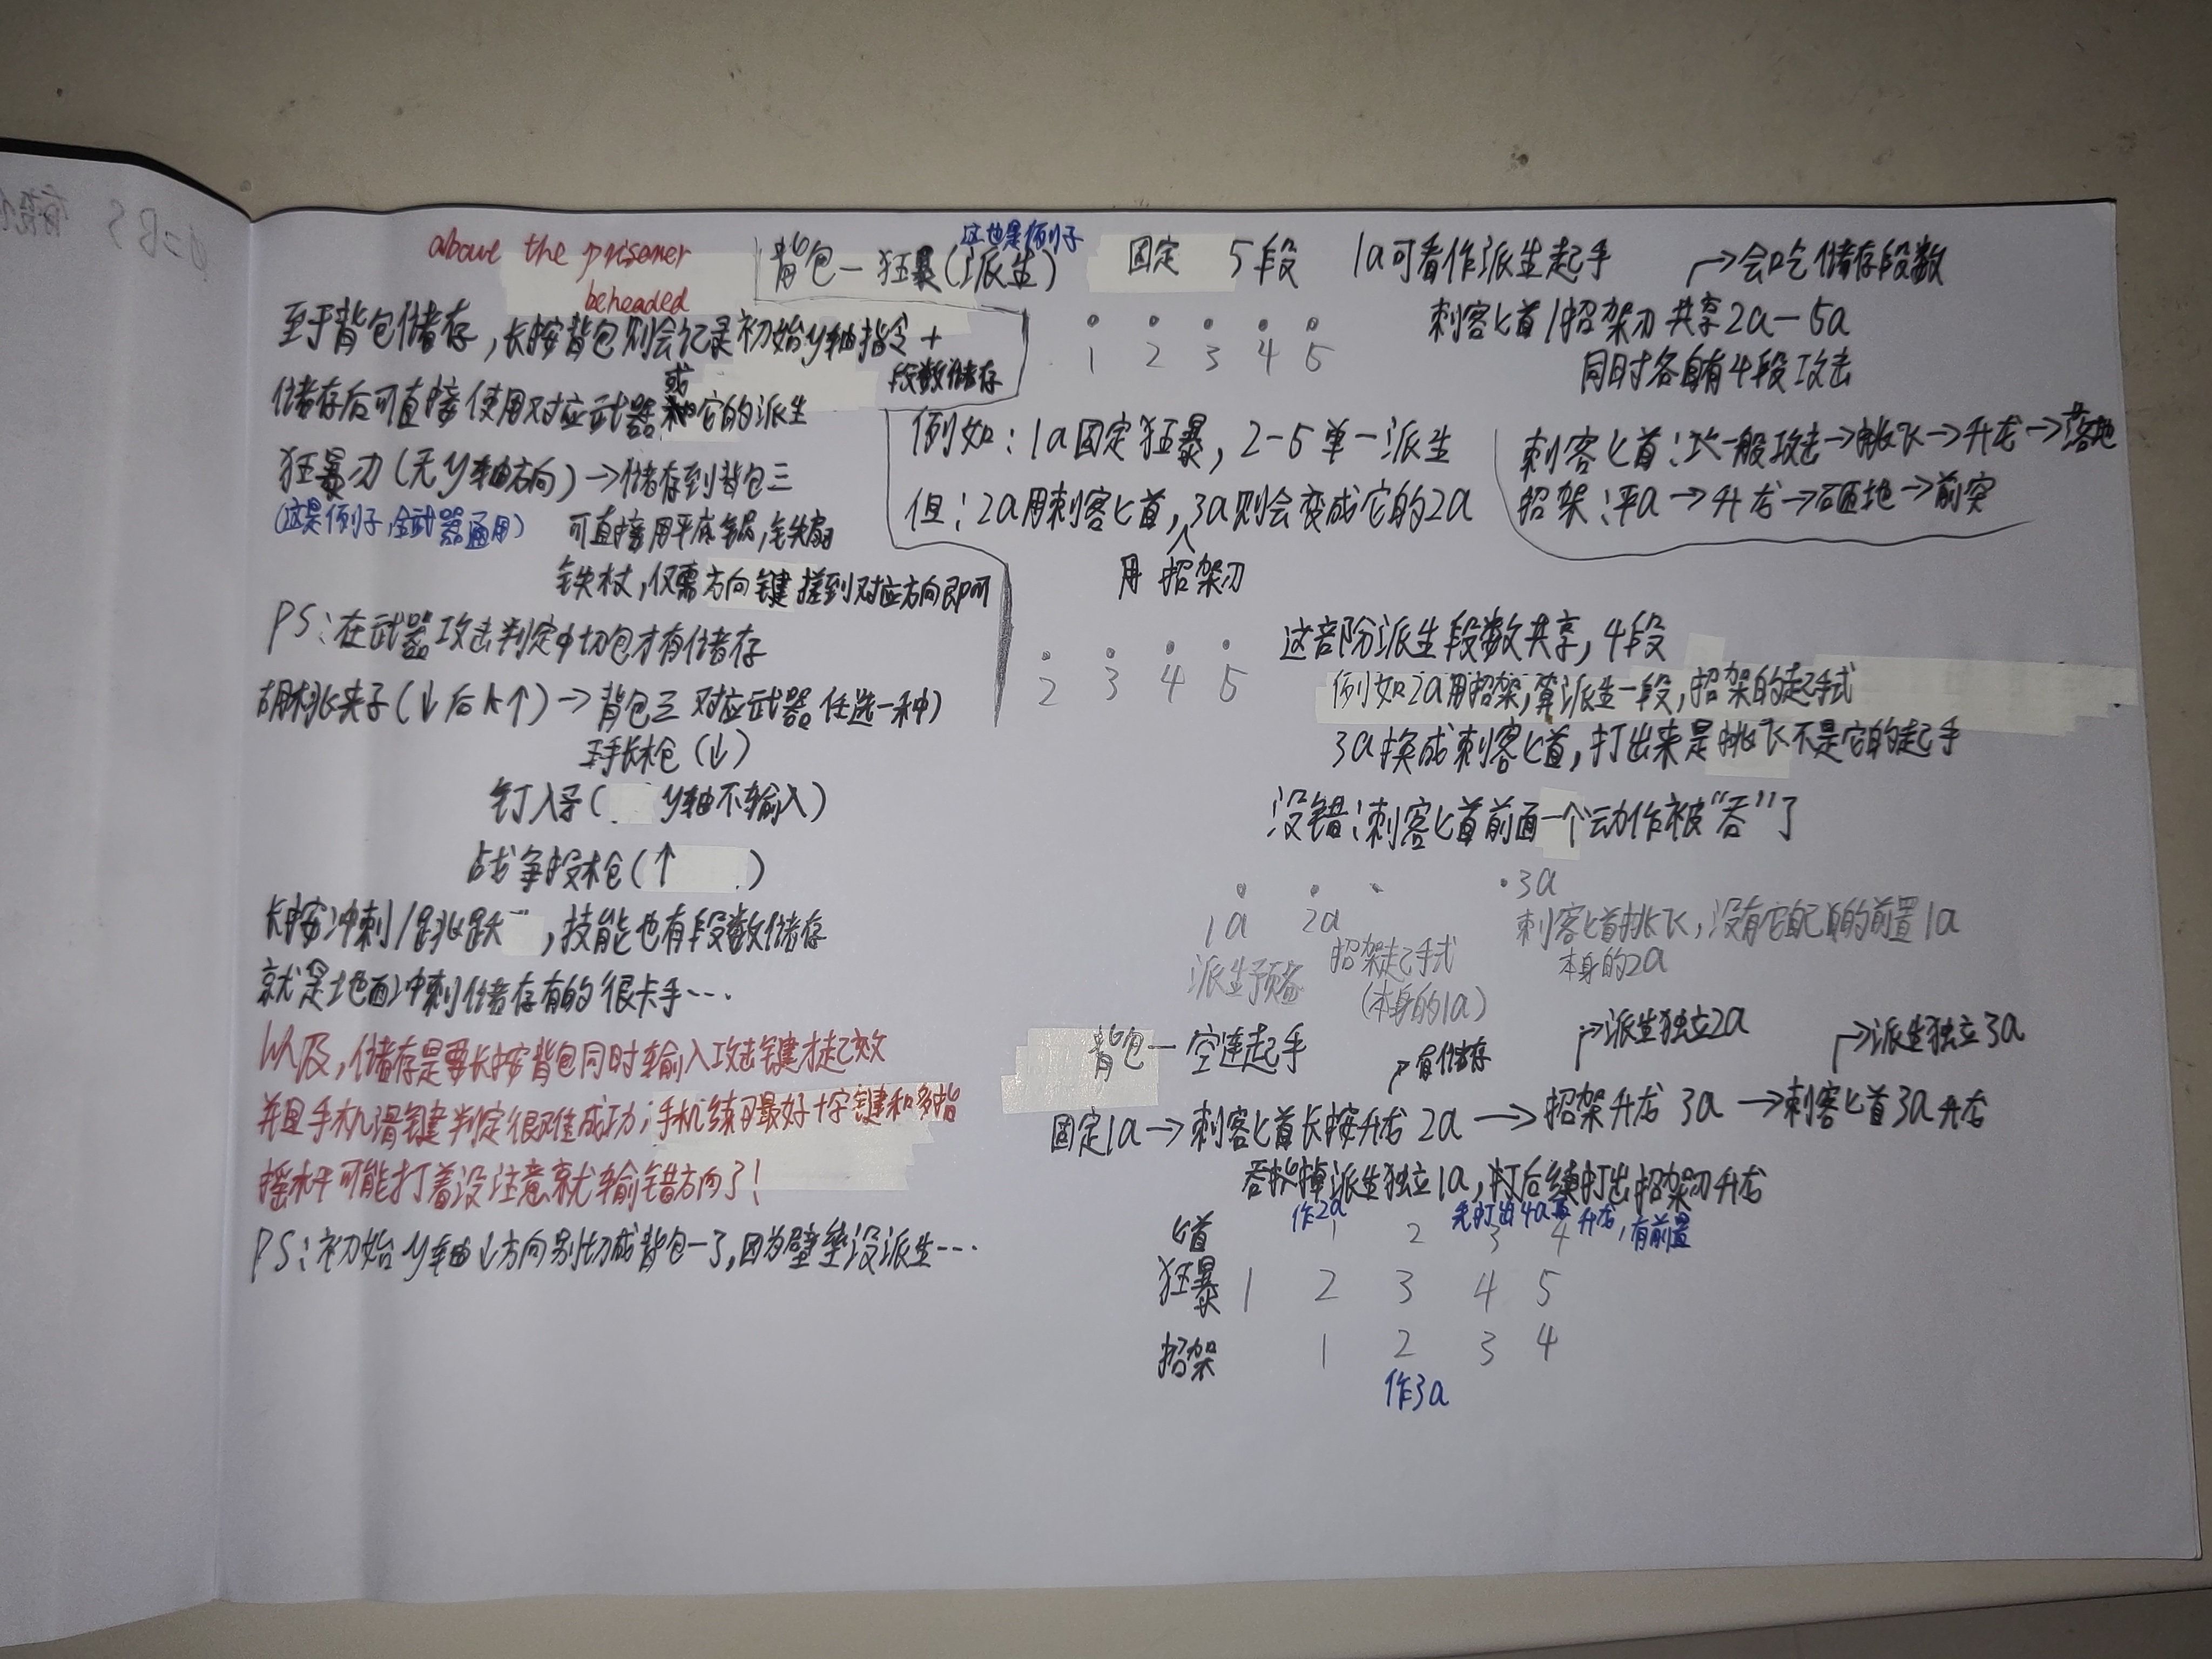 about the prisoner
beheaded
至于背包储存,长按背包则会记录初始y轴指令+
段数储存
储存后可直接使用对应武器或它的派生
狂暴刃(无y轴方向)→储存到背包三
(这是例子,全武器通用)
可直接用平底锅,铁扇
铁杖,仅需方向键搓到对应方向即可
PS:在武器攻击判定中切包才有储存
胡桃夹子(↓后长↑)→背包三对应武器任选一种)
长枪(↓)
钉入子(y轴不输入)
战争投枪(↑)
长按冲刺/跳跃,技能也有段数储存
就是地面冲刺储存有的很卡手…
以及,储存是要长按背包同时输入攻击键才起效
并且手机滑键判定很难成功;手机练习最好十字键和多指
摇杆可能打着没注意就输错方向了!
PS:初始y轴↓方向别切成背包一了,因为壁垒没派生…
背包一狂暴(派生)
这也是例子
固定 5段 1a可看作派生起手
→会吃储存段数
1 2 3 4 5
刺客匕首/招架刃共享2a-5a
同时各自有4段攻击
例如:1a固定狂暴,2-5单一派生
但:2a用刺客匕首,3a则会变成它的2a
用招架刃
刺客匕首:一般攻击→挑飞→升龙→落地
招架:平a→升龙→砸地→前突
2 3 4 5
这部分派生段数共享,4段
例如2a用招架,算派生一段,招架的起手式
3a换成刺客匕首,打出来是挑飞不是它的起手
没错:刺客匕首前面一个动作被“吞”了
1a 2a ·3a
派生预备 招架起手式 刺客匕首挑飞,没有它自己的前置1a
(本身的1a) 本身的2a
背包一空连起手
→有储存 →派生独立2a →派生独立3a
固定1a→刺客匕首长按升龙 2a→招架升龙 3a→刺客匕首3a升龙
吞掉派生独立1a,打后续打出招架刃升龙
作2a 先打出4a再升龙,有前置
匕首 1 2 3 4
狂暴 1 2 3 4 5
招架 1 2 3 4
作3a